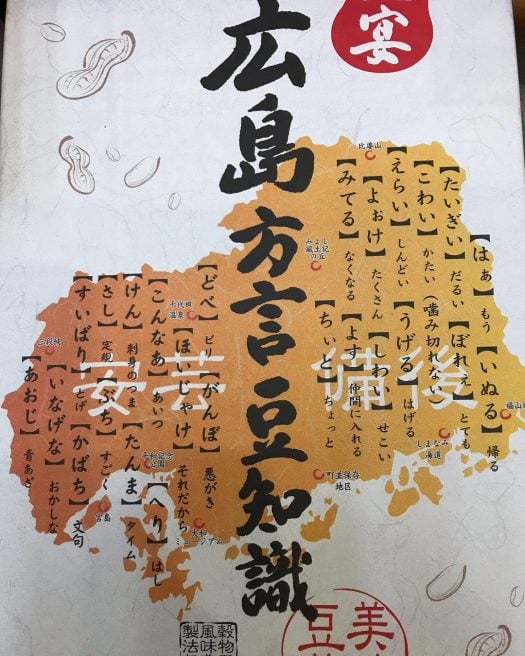 宴
広島方言豆知識
【はぁ】もう【いぬる】帰る
【たいぎい】だるい【ぼれぇ】とても
【こわい】かたい（噛み切れない）
【えらい】しんどい【うげる】はげる
【よぉけ】たくさん【しわ】せこい
【みてる】なくなる【よす】仲間に入れる
【ちぃと】ちょっと
備後
比婆山
みよし
風土記
の丘
福山
しまなみ
海道
町並保存
地区
【どべ】ビリ【がんぼ】悪がき
【ほいじゃけ】それだから
【こんなあ】あいつ【へり】はし
【けん】刺身のつま【たんま】タイム
【さし】定規【ぶち】すごく
【すいばり】とげ【かばち】文句
【いなげな】おかしな
【あおじ】青あざ
安芸
千代田
温泉
三段峡
平和記念
公園
宮島
大和
ミュージアム
穀物
風味
製法
美
豆